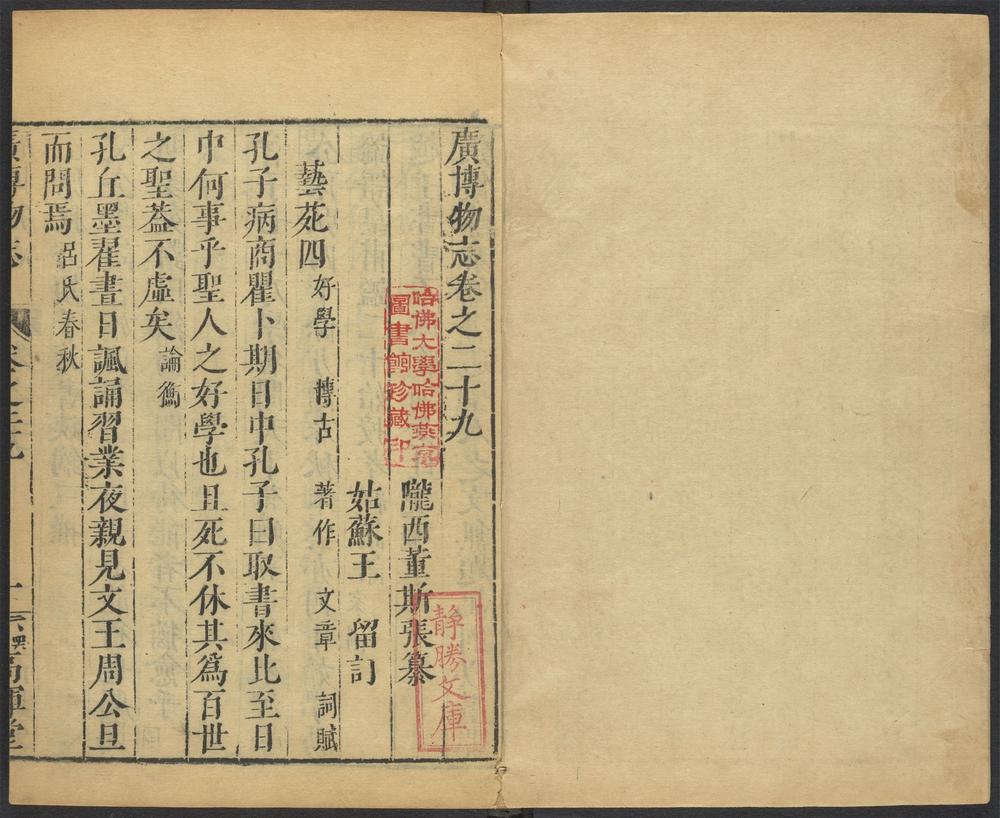 廣博物志卷之二十九
隴西董斯張纂
姑蘇王　留訂
藝苑四 好學 博古 著作 文章 詞賦
孔子病商瞿卜期日中孔子曰取書來比至日
中何事乎聖人之好學也且死不休其爲百世
之聖葢不虛矣 論衡
孔丘墨翟晝日諷誦習業夜親見文王周公旦
而問焉 呂氏春秋
廣博物志 卷之二十九 一 高暉堂
哈佛大學哈佛燕京
圖書館珍藏印
靜勝文庫